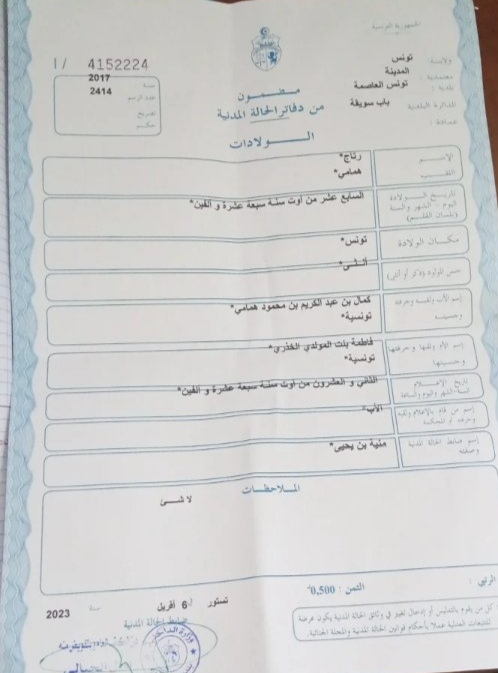 الجمهورية التونسية
I/ 4152224
ولاية: تونس
معتمدية: المدينة
بلدية: تونس العاصمة
الدائرة البلدية باب سويقة
عمادة:
سنة 2017
عدد الرسم 2414
تصريح
حكم
مضمون
من دفاتر الحالة المدنية
الولادات
الإسم رتاج*
اللقب همامي*
تاريخ الولادة
اليوم - الشهر والسنة
(بلسان القلم)
السابع عشر من أوت سنة سبعة عشرة و ألفين*
مكان الولادة تونس*
جنس المولود (ذكر أو أنثى) أنثى*
إسم الأب ولقبه وحرفته كمال بن عبد الكريم بن محمود همامي*
وجنسيته تونسية*
إسم الأم ولقبها وحرفتها فاطمة بنت المولدي الخذري*
وجنسيتها تونسية*
تاريخ الإعلام
السنة-الشهر واليوم والساعة
الثاني و العشرون من أوت سنة سبعة عشرة و ألفين*
إسم من قام بالإعلام ولقبه
وحرفته أو المحكمة
الأب*
إسم ضابط الحالة المدنية
وصفته
منية بن يحيى*
الملاحظات
لا شئ
الرتبي :
الثمن : 0,500*
تستور في 6 أفريل سنة 2023
ضابط الحالة المدنية
وزارة الداخلية
كل من يقوم بالتدليس أو إدخال تغيير في وثائق الحالة المدنية يكون عرضة
للتتبعات العدلية عملا بأحكام قوانين الحالة المدنية والمجلة الجنائية.